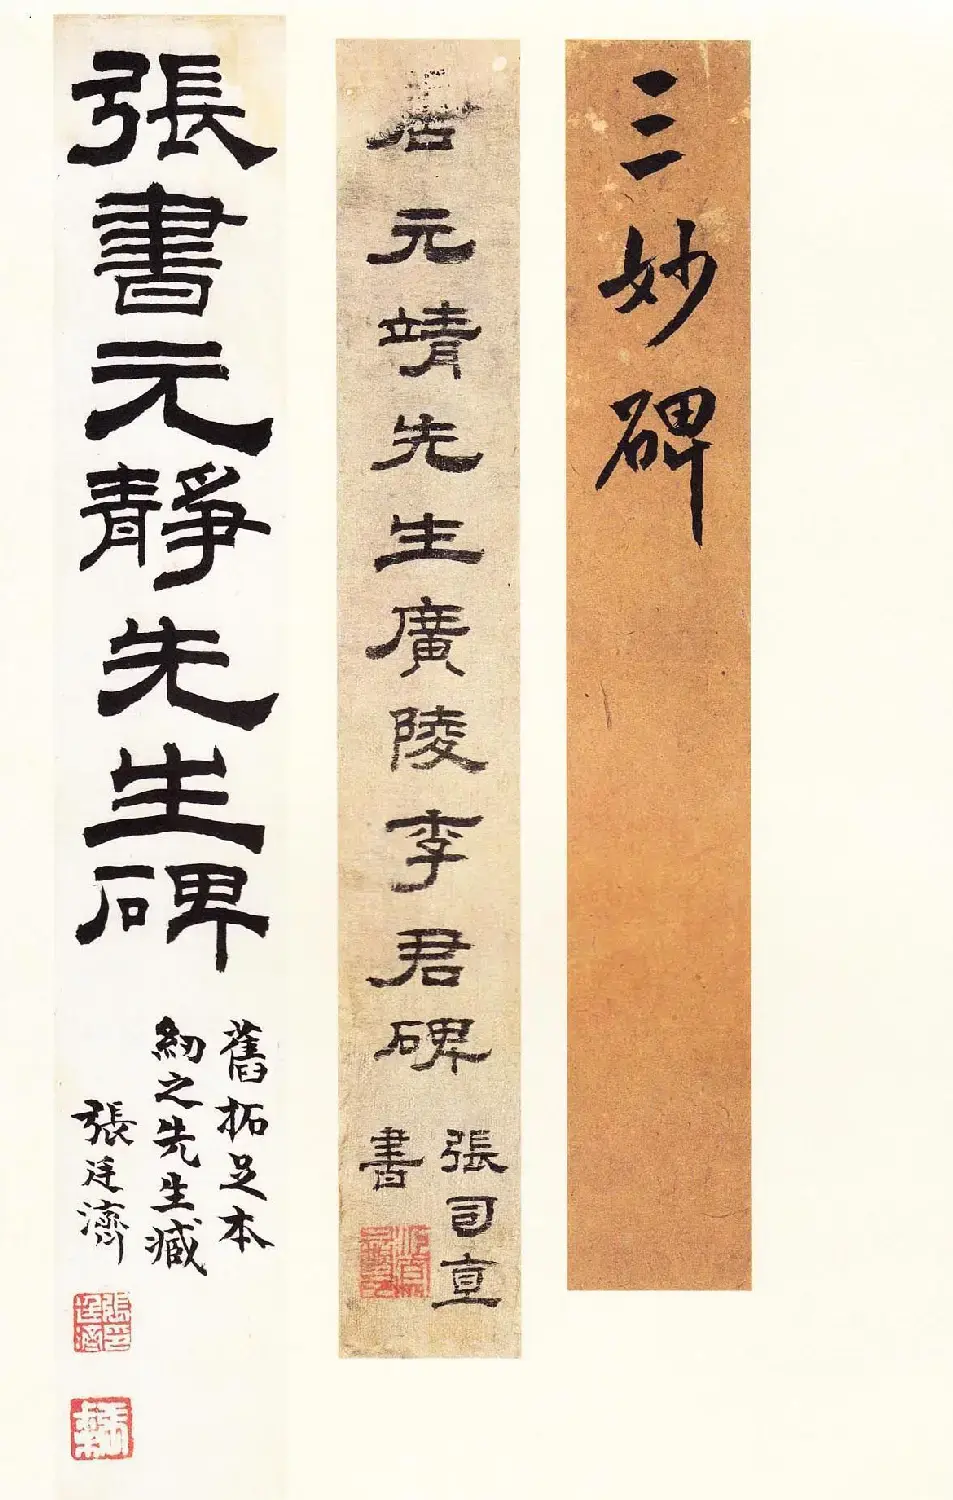 三妙碑
元靖先生廣陵李君碑
張司直
書
張書元靜先生碑
舊拓足本
紉之先生臧
張廷濟
張廷濟印